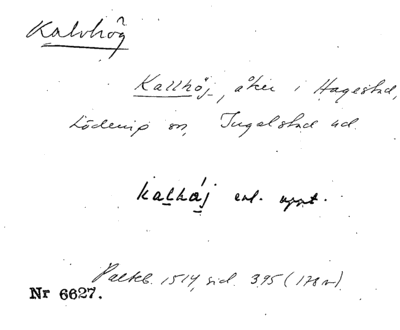 Kalvhög
Kallhöj, åker i Hagestad,
Löderup sn, Ingelstad hd.
kalháj enl. uppt.
Palteb. 1514, sid. 395 (178 v).
Nr 6627.